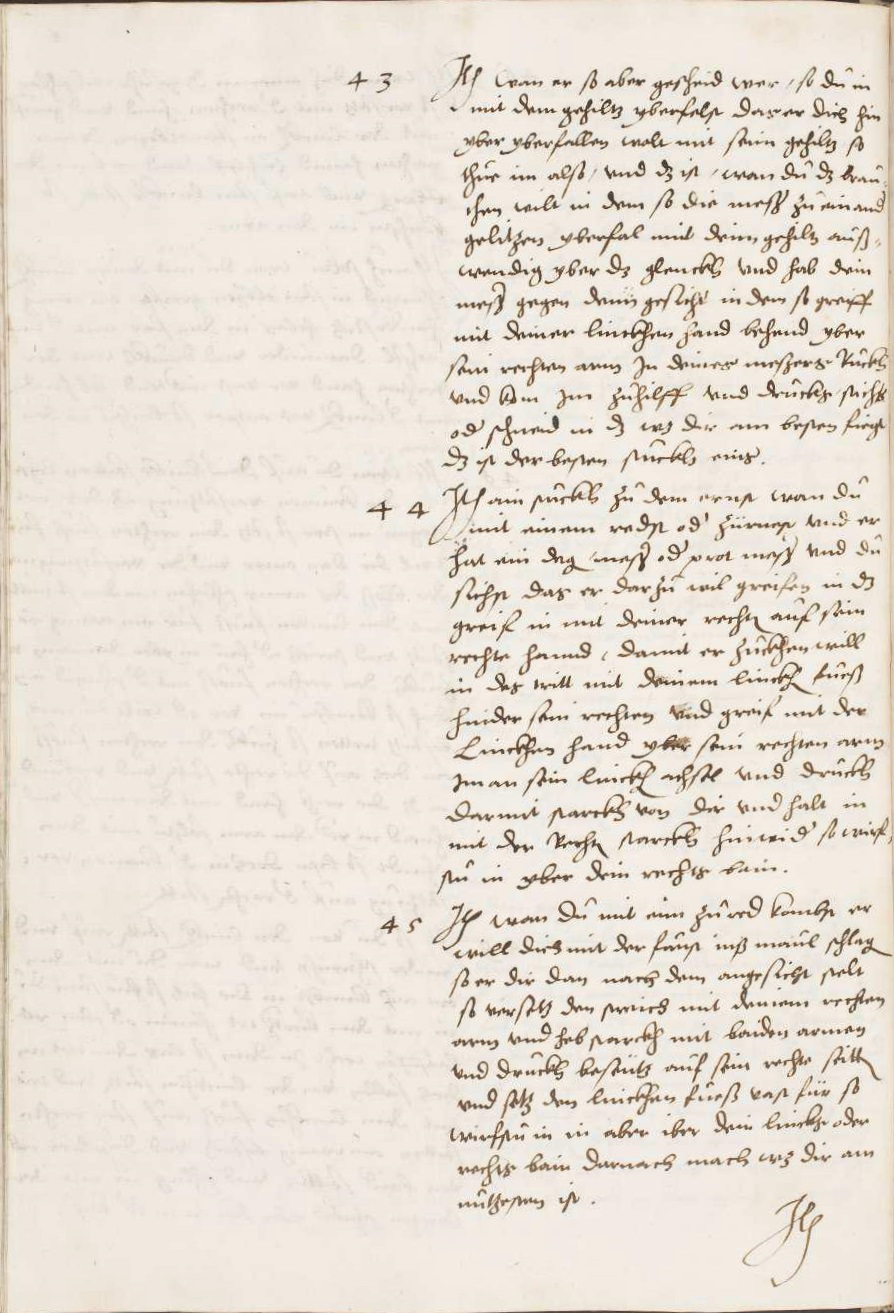 43 Itē wan er so aber gescheid wer / so du in
mit dem gehiltz yberfelst das er dich hin
yber yberfallen welt mit seim gehiltz so
thue im also / und dz ist / wan du dz brau¬
chen wilt in dem so die mess̄ zu einand̄
gelitzen yberfal mit deim gehiltz auß¬
wendig yber dz glenckh und hab dein
mess̄ gegen deim gesicht in dem so greiff
mit deiner linckhen hand behend yber
sein rechten arm In deines messers Ruckh
und kom Im zuhilff und druckhs, stichs
od̄ schneid in dz wz dir am besten fiegt
dz ist der besten stuckh eins.
44 Itē ain stuckh zu dem ernst wan du
mit einem redst od̄ zürnest und er
hat ein deg, mess̄ od̄ prot mess̄ und du
sichst das er darzu wil greifen in dz
greif in mit deiner rechtē auf sein
rechte hannd, damit er zuckhen will
in des tritt mit deinem linckē fueß
hinder sein rechten und greif mit der
Linckhen hand yber sein rechten arm
Im an sein linckē achsel und druckh
darmit starckh von dir und halt in
mit der Rechtē starckh hinwid̄ so wirf¬
stu in yber dein rechts bain.
45 Itē wan du mit eim zu red kombst er
will dich mit der faust inß maul schlagē
so er dir dan nach dem angesicht stelt
so versetz den streich mit deinem rechten
arm und heb starckh mit baiden armen
und druckh beseütz auf sein rechte seittē
und setz den linckhen fueß vast für so
wirfstu in in aber iber dein linckhs oder
rechts bain darnach mach wz dir am
nützesten ist.
Itē